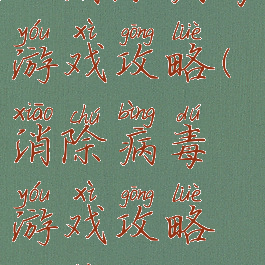 yóu xì gōng lüè
游戏攻略(
xiāo chú bìng dú
消除病毒
yóu xì gōng lüè
游戏攻略